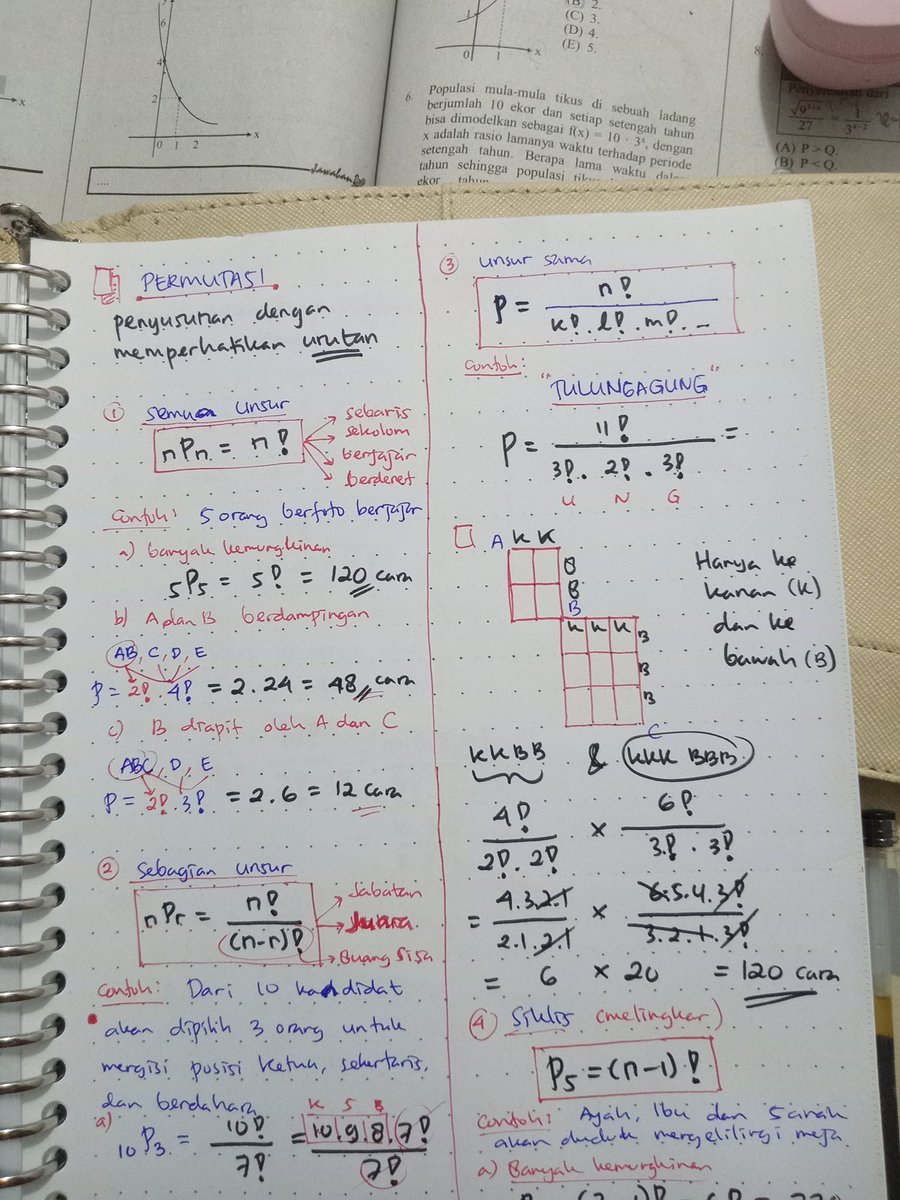 6
4
2
0 1 2
x
x
....
Jawaban
1
0 1
x
(B) 2.
(C) 3.
(D) 4.
(E) 5.
6. Populasi mula-mula tikus di sebuah ladang
berjumlah 10 ekor dan setiap setengah tahun
bisa dimodelkan sebagai f(x) = 10 · 3ˣ, dengan
x adalah rasio lamanya waktu terhadap periode
setengah tahun. Berapa lama waktu dalam
tahun sehingga populasi
ekor tahun
8.
dari
27
(A) P > Q.
(B) P < Q.
PERMUTASI
penyusunan dengan
memperhatikan urutan
① semua unsur
nPn = n!
sebaris
sekolom
berjajar
berderet
Contoh: 5 orang berfoto berjajar
a) banyak kemungkinan
5P5 = 5! = 120 cara
b) A dan B berdampingan
AB, C, D, E
P = 2! . 4! = 2 . 24 = 48 cara
c) B diapit oleh A dan C
ABC, D, E
P = 2! . 3! = 2 . 6 = 12 cara
② sebagian unsur
nPr = n! / (n-r)!
Jabatan
Juara
Buang sisa
Contoh: Dari 10 kandidat
akan dipilih 3 orang untuk
mengisi posisi ketua, sekertaris,
dan bendahara
K S B
a) 10P3 = 10! / 7! = 10.9.8.7! / 7!
③ unsur sama
P = n! / k! . l! . m! . ...
Contoh:
"TULUNGAGUNG"
P = 11! / 3! . 2! . 3! =
U N G
A K K
B
B
B
K K K
B
B
B
C
Hanya ke
kanan (K)
dan ke
bawah (B)
KKBB & KKK BBB
4! / 2! . 2! × 6! / 3! . 3!
= 4.3.2.1 / 2.1.2.1 × 6.5.4.3! / 3.2.1.3!
= 6 × 20 = 120 cara
④ Siklis (melingkar)
Ps = (n-1)!
Contoh: Ayah, Ibu dan 5 anak
akan duduk mengelilingi meja
a) Banyak kemungkinan